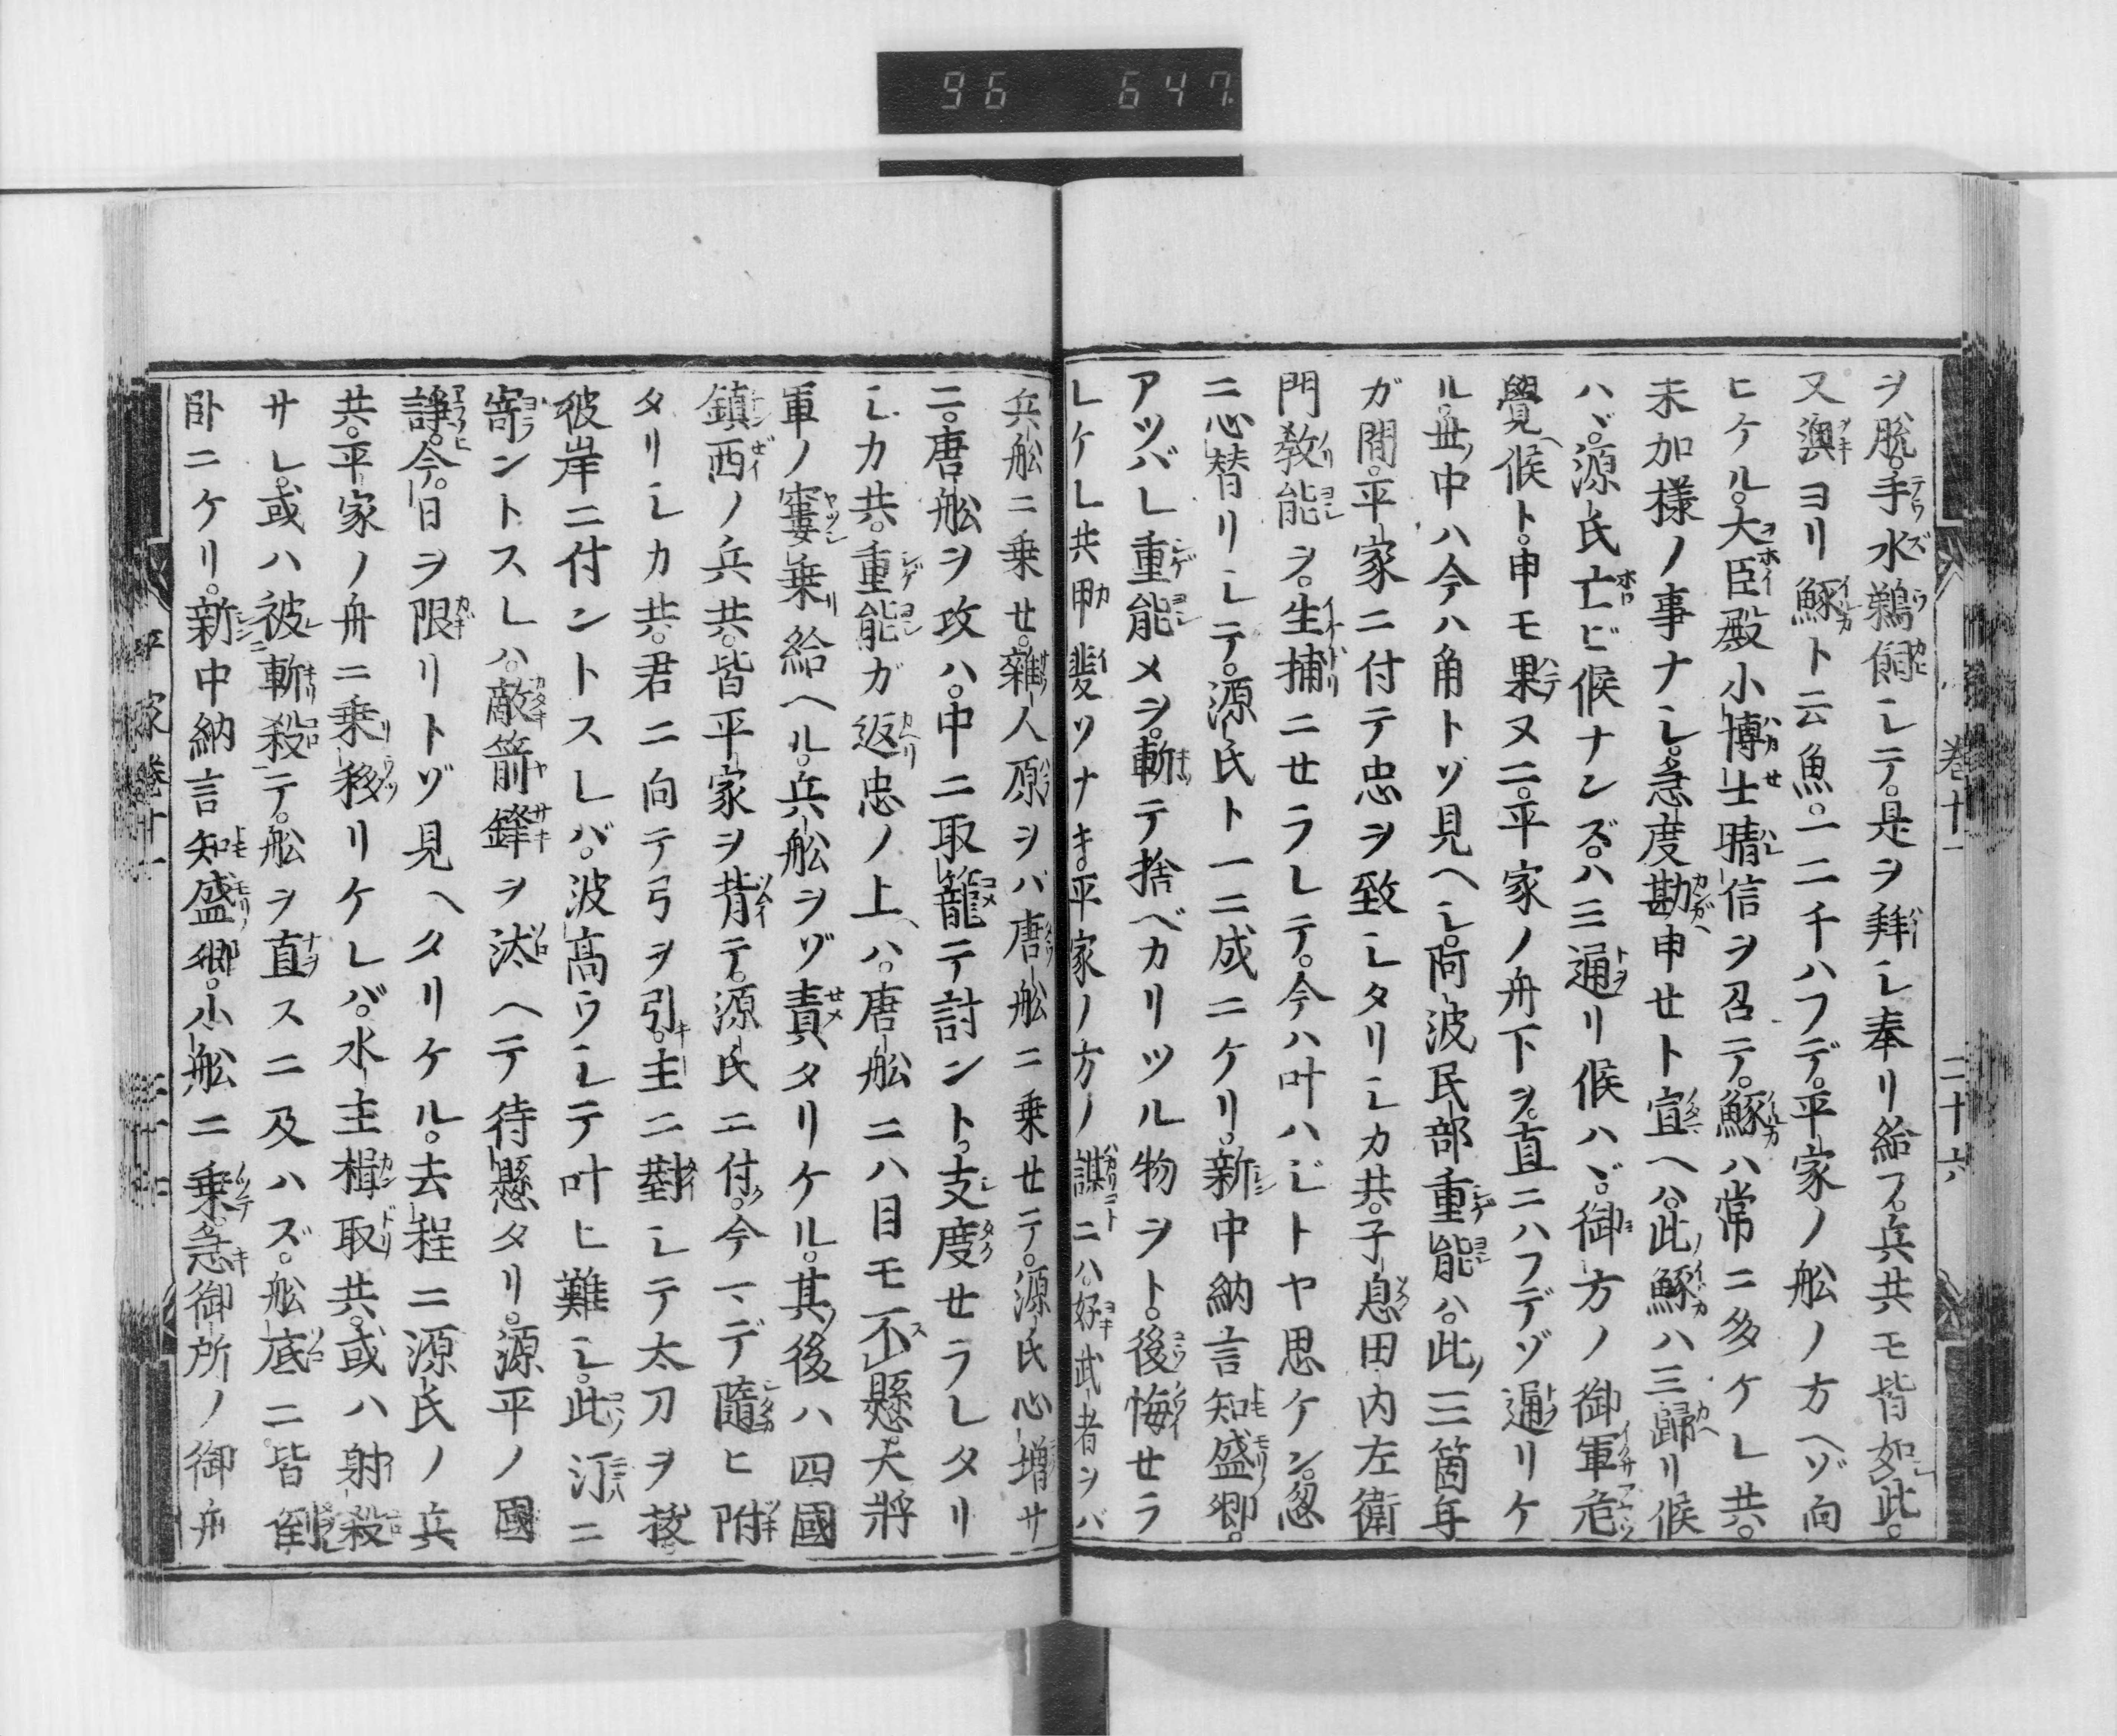 96 647
ヲ脱。手水鵜飼シテ。是ヲ拜シ奉リ給フ。兵共モ皆如此。
又澳ヨリ鯄ト云魚。一二千ハフデ。平家ノ舩ノ方ヘゾ向
ヒケル。大臣殿小博士晴信ヲ召テ。鯄ハ常ニ多ケレ共。
未加様ノ事ナシ。急度勘申セト宣ヘハ。此鯄ハ三歸リ候
ハヾ。源氏亡ビ候ナンズ。ハミ通リ候ハヾ。御方ノ御軍危
覺候ト。申モ果ヌニ。平家ノ舟下ヲ。直ニハフデゾ通リケ
ル。世中ハ今ハ角トゾ見ヘシ。阿波民部重能ハ。此三箇年
ガ間。平家ニ付テ忠ヲ致シタリシカ共。子息田内左衛
門教能ヲ。生捕ニセラレテ。今ハ叶ハジトヤ思ケン。忽
ニ心替リシテ。源氏ト一ニ成ニケリ。新中納言知盛卿。
アツバレ重能メヲ。斬テ捨ベカリツル物ヲト。後悔セラ
レケレ共甲斐ソナキ。平家ノ方ノ謀ニハ。好武者ヲバ
兵舩ニ乗セ。雜人原ヲバ唐舩ニ乗セテ。源氏心増サ
ニ。唐舩ヲ攻ハ。中ニ取籠テ討ント。支度セラレタリ
シカ共。重能ガ返忠ノ上ハ。唐舩ニハ目モ不懸。大將
軍ノ窶乗給ヘル。兵舩ヲゾ責タリケル。其後ハ四國
鎮西ノ兵共。皆平家ヲ背テ。源氏ニ付。今マデ隨ヒ附
タリシカ共。君ニ向テ弓ヲ引。主ニ對シテ太刀ヲ拔。
彼岸ニ付ントスレバ。波高ウシテ叶ヒ難シ。此汀ニ
寄ントスレハ。敵箭鋒ヲ汰ヘテ待懸タリ。源平ノ國
諍。今日ヲ限リトゾ見ヘタリケル。去程ニ源氏ノ兵
共。平家ノ舟ニ乗移リケレバ。水主楫取共。或ハ射殺
サレ。或ハ被斬殺テ。舩ヲ直スニ及ハズ。舩底ニ皆倒
臥ニケリ。新中納言知盛卿。小舩ニ乗。急御所ノ御舟
卷十一 二十六
平家卷十一